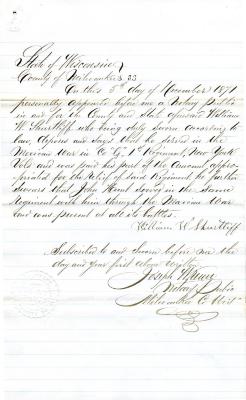 State of Wisconsin
County of Milwaukee SS
On this 5th day of December 1871
personally appeared before me a Notary Public
in and for the County and State aforesaid William
W. Shurtliff who being duly sworn according to
law, deposes and says that he served in the
Mexican War in Co. 1st Regiment, New York
Vols and was paid his part of the amount appro-
priated for the relief of said Regiment, he further
swears that John Hunt served in the same
Regiment with him through the Mexican War
and was present at all its battles.
William W. Shurtliff
Subscribed to and sworn before me the
day and year first above written
Joseph
Notary Public
Milwaukee Co Wis